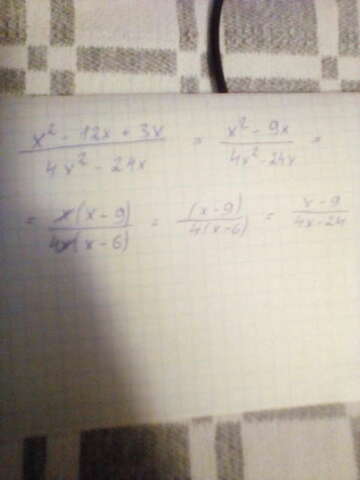 x² - 12x + 3x / 4x² - 24x = x² - 9x / 4x² - 24x =
= x(x - 9) / 4x(x - 6) = (x - 9) / 4(x - 6) = x - 9 / 4x - 24